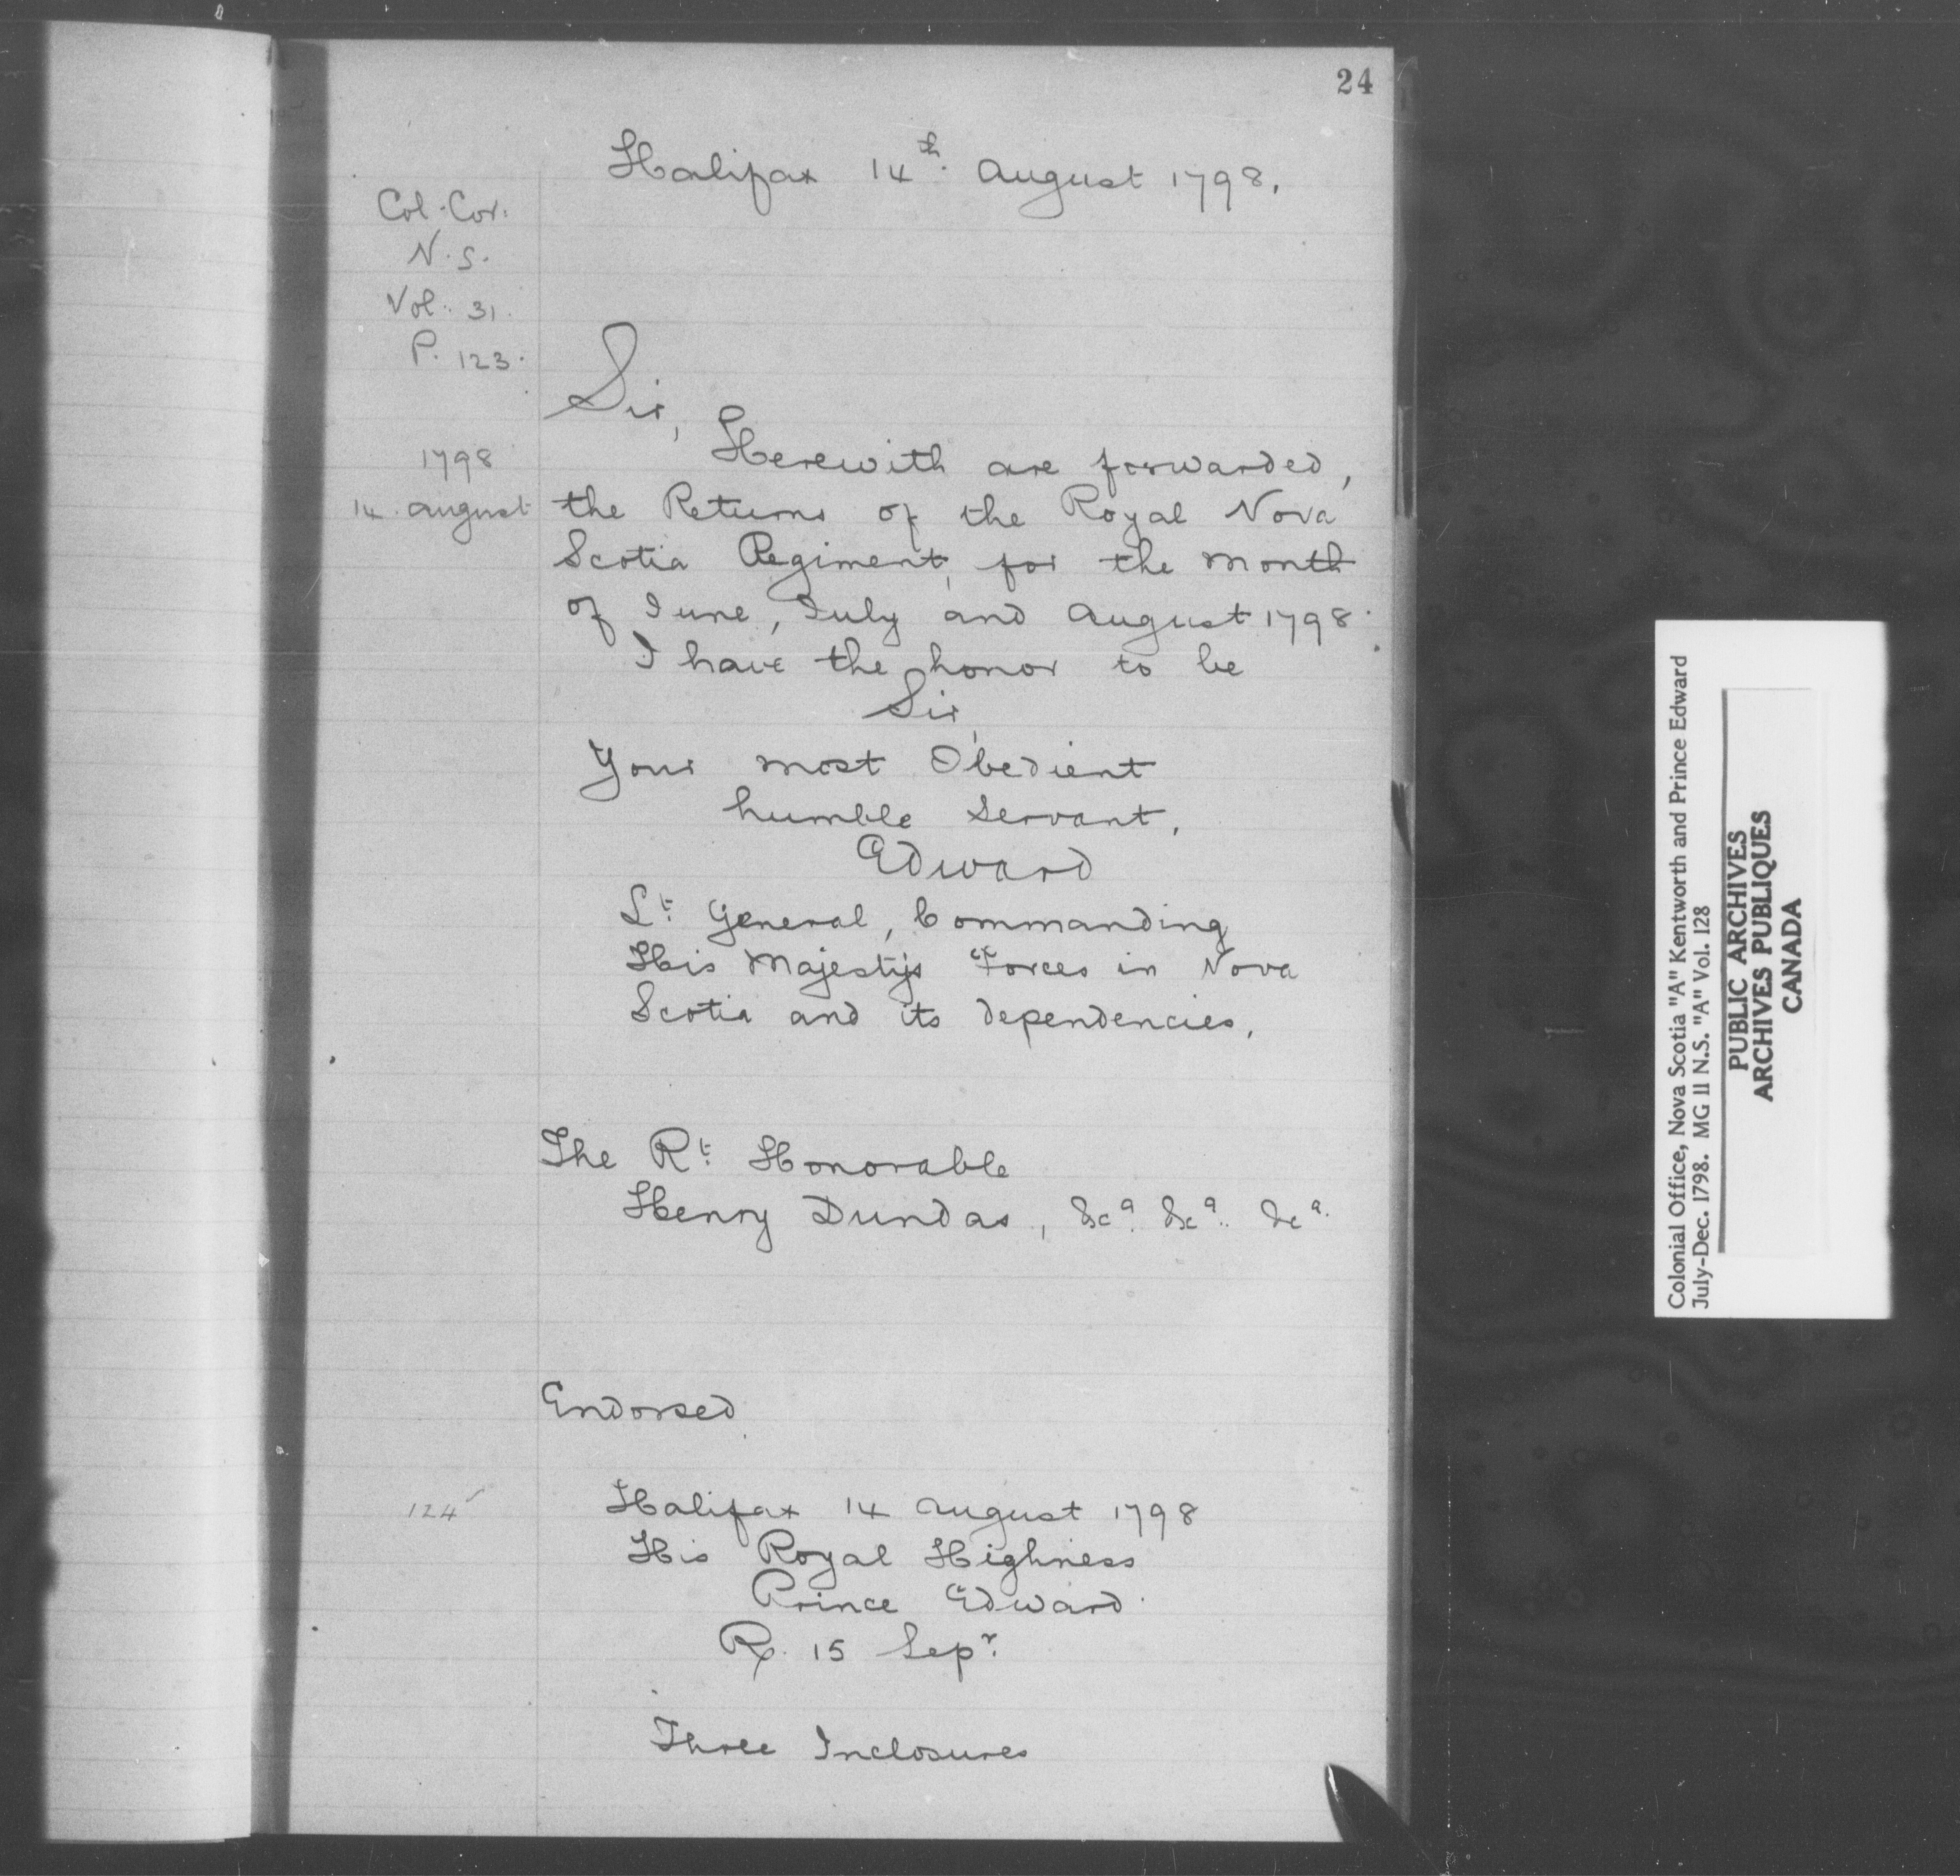 24
Halifax 14th. August 1798.
Col. Cor.
N. S.
Vol. 31.
P. 123.
Sir,
1798
14. August
Herewith are forwarded,
the Returns of the Royal Nova
Scotia Regiment, for the Month
of June, July and August 1798.
I have the honor to be
Sir,
Your most Obedient
humble Servant,
Edward
Lt. General, Commanding
His Majesty's Forces in Nova
Scotia and its dependencies.
The Rt. Honorable
Henry Dundas, &ca. &ca. &ca.
Endorsed
124
Halifax 14 August 1798
His Royal Highness
Prince Edward.
Rx. 15 Sepr.
Three Inclosures
Colonial Office, Nova Scotia "A" Kentworth and Prince Edward
July-Dec. 1798. MG 11 N.S. "A" Vol. 128
PUBLIC ARCHIVES
ARCHIVES PUBLIQUES
CANADA